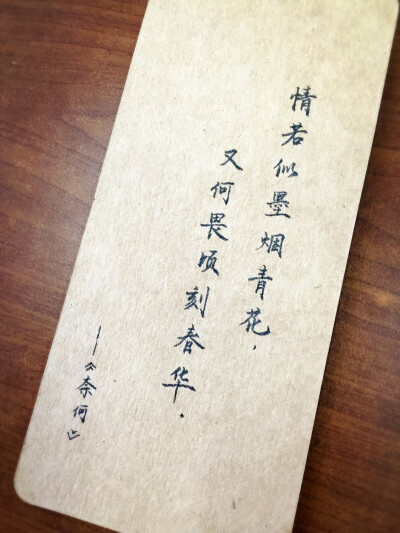 情若似墨烟青花，
又何畏顷刻春华．
——《奈何》